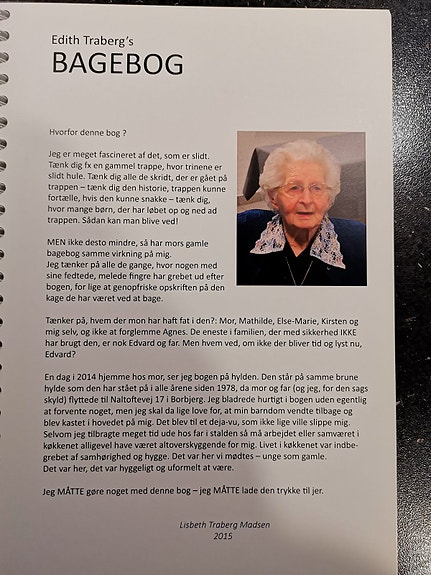 Edith Traberg's
BAGEBOG
Hvorfor denne bog ?
Jeg er meget fascineret af det, som er slidt.
Tænk dig fx en gammel trappe, hvor trinene er
slidt hule. Tænk dig alle de skridt, der er gået på
trappen – tænk dig den historie, trappen kunne
fortælle, hvis den kunne snakke – tænk dig,
hvor mange børn, der har løbet op og ned ad
trappen. Sådan kan man blive ved!
MEN ikke desto mindre, så har mors gamle
bagebog samme virkning på mig.
Jeg tænker på alle de gange, hvor nogen med
sine fedtede, melede fingre har grebet ud efter
bogen, for lige at genopfriske opskriften på den
kage de har været ved at bage.
Tænker på, hvem der mon har haft fat i den?: Mor, Mathilde, Else-Marie, Kirsten og
mig selv, og ikke at forglemme Agnes. De eneste i familien, der med sikkerhed IKKE
har brugt den, er nok Edvard og far. Men hvem ved, om ikke der bliver tid og lyst nu,
Edvard?
En dag i 2014 hjemme hos mor, ser jeg bogen på hylden. Den står på samme brune
hylde som den har stået på i alle årene siden 1978, da mor og far (og jeg, for den sags
skyld) flyttede til Naltoftevej 17 i Borbjerg. Jeg bladrede hurtigt i bogen uden egentlig
at forvente noget, men jeg skal da lige love for, at min barndom vendte tilbage og
blev kastet i hovedet på mig. Det blev til et deja-vu, som ikke lige ville slippe mig.
Selvom jeg tilbragte meget tid ude hos far i stalden så må arbejdet eller samværet i
køkkenet alligevel have været altoverskyggende for mig. Livet i køkkenet var indbe-
grebet af samhørighed og hygge. Det var her vi mødtes – unge som gamle.
Det var her, det var hyggeligt og uformelt at være.
Jeg MÅTTE gøre noget med denne bog – jeg MÅTTE lade den trykke til jer.
Lisbeth Traberg Madsen
2015